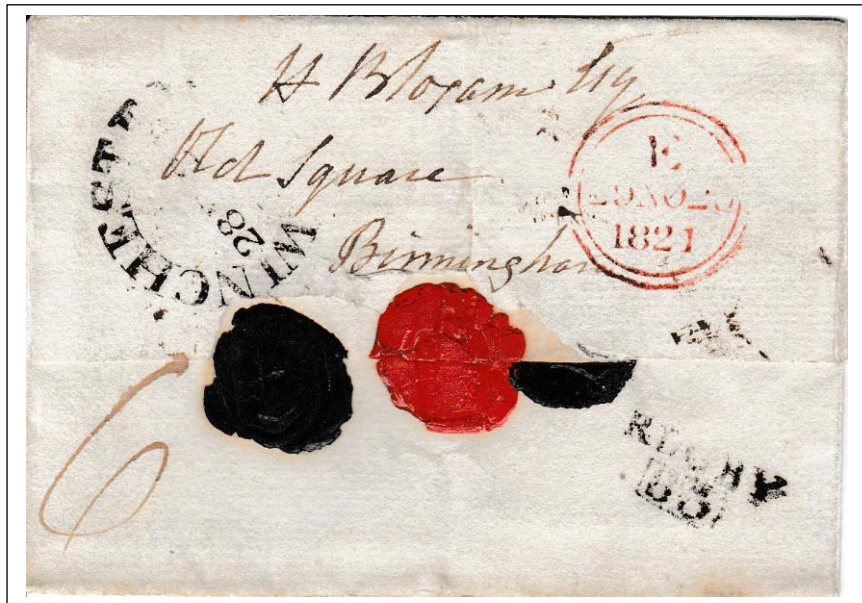 H Bloxam Esq
Old Square
Birmingham
WINCHESTER
28
E
29 NO 29
1821
6